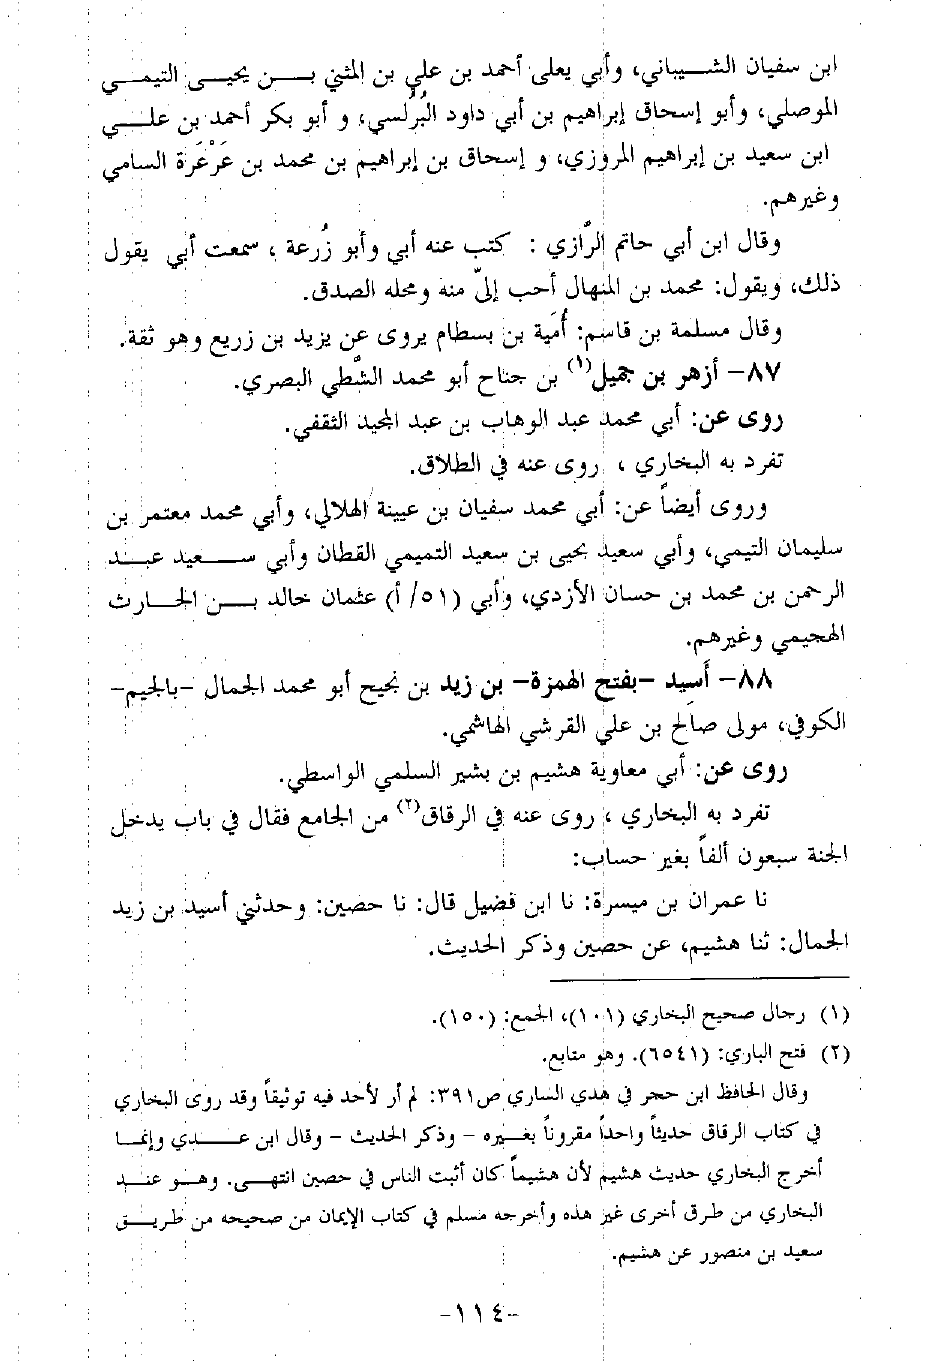 ابن سفيان الشـــيباني، وأبي يعلى أحمد بن علي بن المثني بـــن يحيـــى التيمـــي
الموصلي، وأبو إسحاق إبراهيم بن أبي داود البُرُلسي، و أبو بكر أحمد بن علـــي
ابن سعيد بن إبراهيم المروزي، و إسحاق بن إبراهيم بن محمد بن عَرْعَرة السامي
وغيرهم.
وقال ابن أبي حاتم الرَّازي : كتب عنه أبي وأبو زُرعة ، سمعت أبي يقول
ذلك، ويقول: محمد بن المنهال أحب إليّ منه ومحله الصدق.
وقال مسلمة بن قاسم: أُمَية بن بسطام يروى عن يزيد بن زريع وهو ثقة.
٨٧- أزهر بن جميل(١) بن جناح أبو محمد الشَّطي البصري.
روى عن: أبي محمد عبد الوهاب بن عبد المجيد الثقفي.
تفرد به البخاري ، روى عنه في الطلاق.
وروى أيضاً عن: أبي محمد سفيان بن عيينة الهلالي، وأبي محمد معتمر بن
سليمان التيمي، وأبي سعيد يحيى بن سعيد التميمي القطان وأبي ســـعيد عبـــد
الرحمن بن محمد بن حسان الأزدي، وأبي (٥١/ أ) عثمان خالد بـــن الحـــارث
الهجيمي وغيرهم.
٨٨- أَسِيد -بفتح الهمزة- بن زيد بن نجيح أبو محمد الجمال -بالجيم-
الكوفي، مولى صالح بن علي القرشي الهاشمي.
روى عن: أبي معاوية هشيم بن بشير السلمي الواسطي.
تفرد به البخاري ، روى عنه في الرقاق(٢) من الجامع فقال في باب يدخل
الجنة سبعون ألفاً بغير حساب:
نا عمران بن ميسرة: نا ابن فضيل قال: نا حصين: وحدثني أسيد بن زيد
الجمال: ثنا هشيم، عن حصين وذكر الحديث.
(١) رجال صحيح البخاري (١٠١)، الجمع: (١٥٠).
(٢) فتح الباري: (٦٥٤١). وهو متابع.
وقال الحافظ ابن حجر في هدي الساري ص٣٩١: لم أر لأحد فيه توثيقاً وقد روى البخاري
في كتاب الرقاق حديثاً واحداً مقروناً بغـــيره - وذكر الحديث - وقال ابن عـــدي وإنمـــا
أخرج البخاري حديث هشيم لأن هشيماً كان أثبت الناس في حصين انتهـــى. وهـــو عنـــد
البخاري من طرق أخرى غير هذه وأخرجه مسلم في كتاب الإيمان من صحيحه من طريـــق
سعيد بن منصور عن هشيم.
-١١٤-